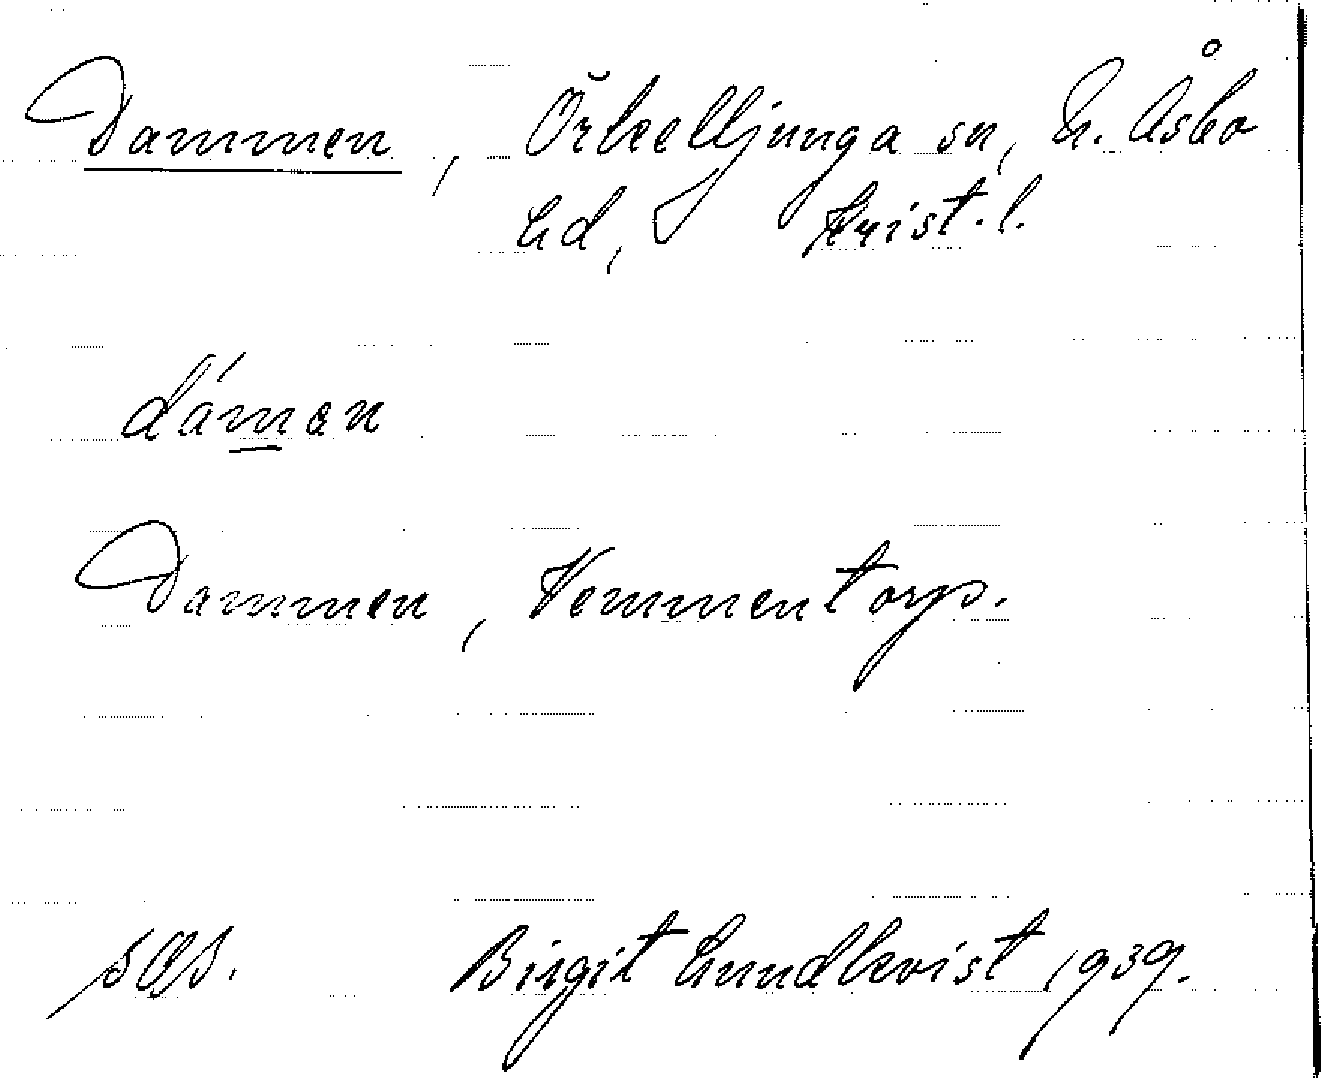 Dammen, Örkelljunga sn, N. Åsbo
hd, Krist. l.
dámən
Dammen, Vemmentorp.
sgs. Birgit Lundkvist 1939.